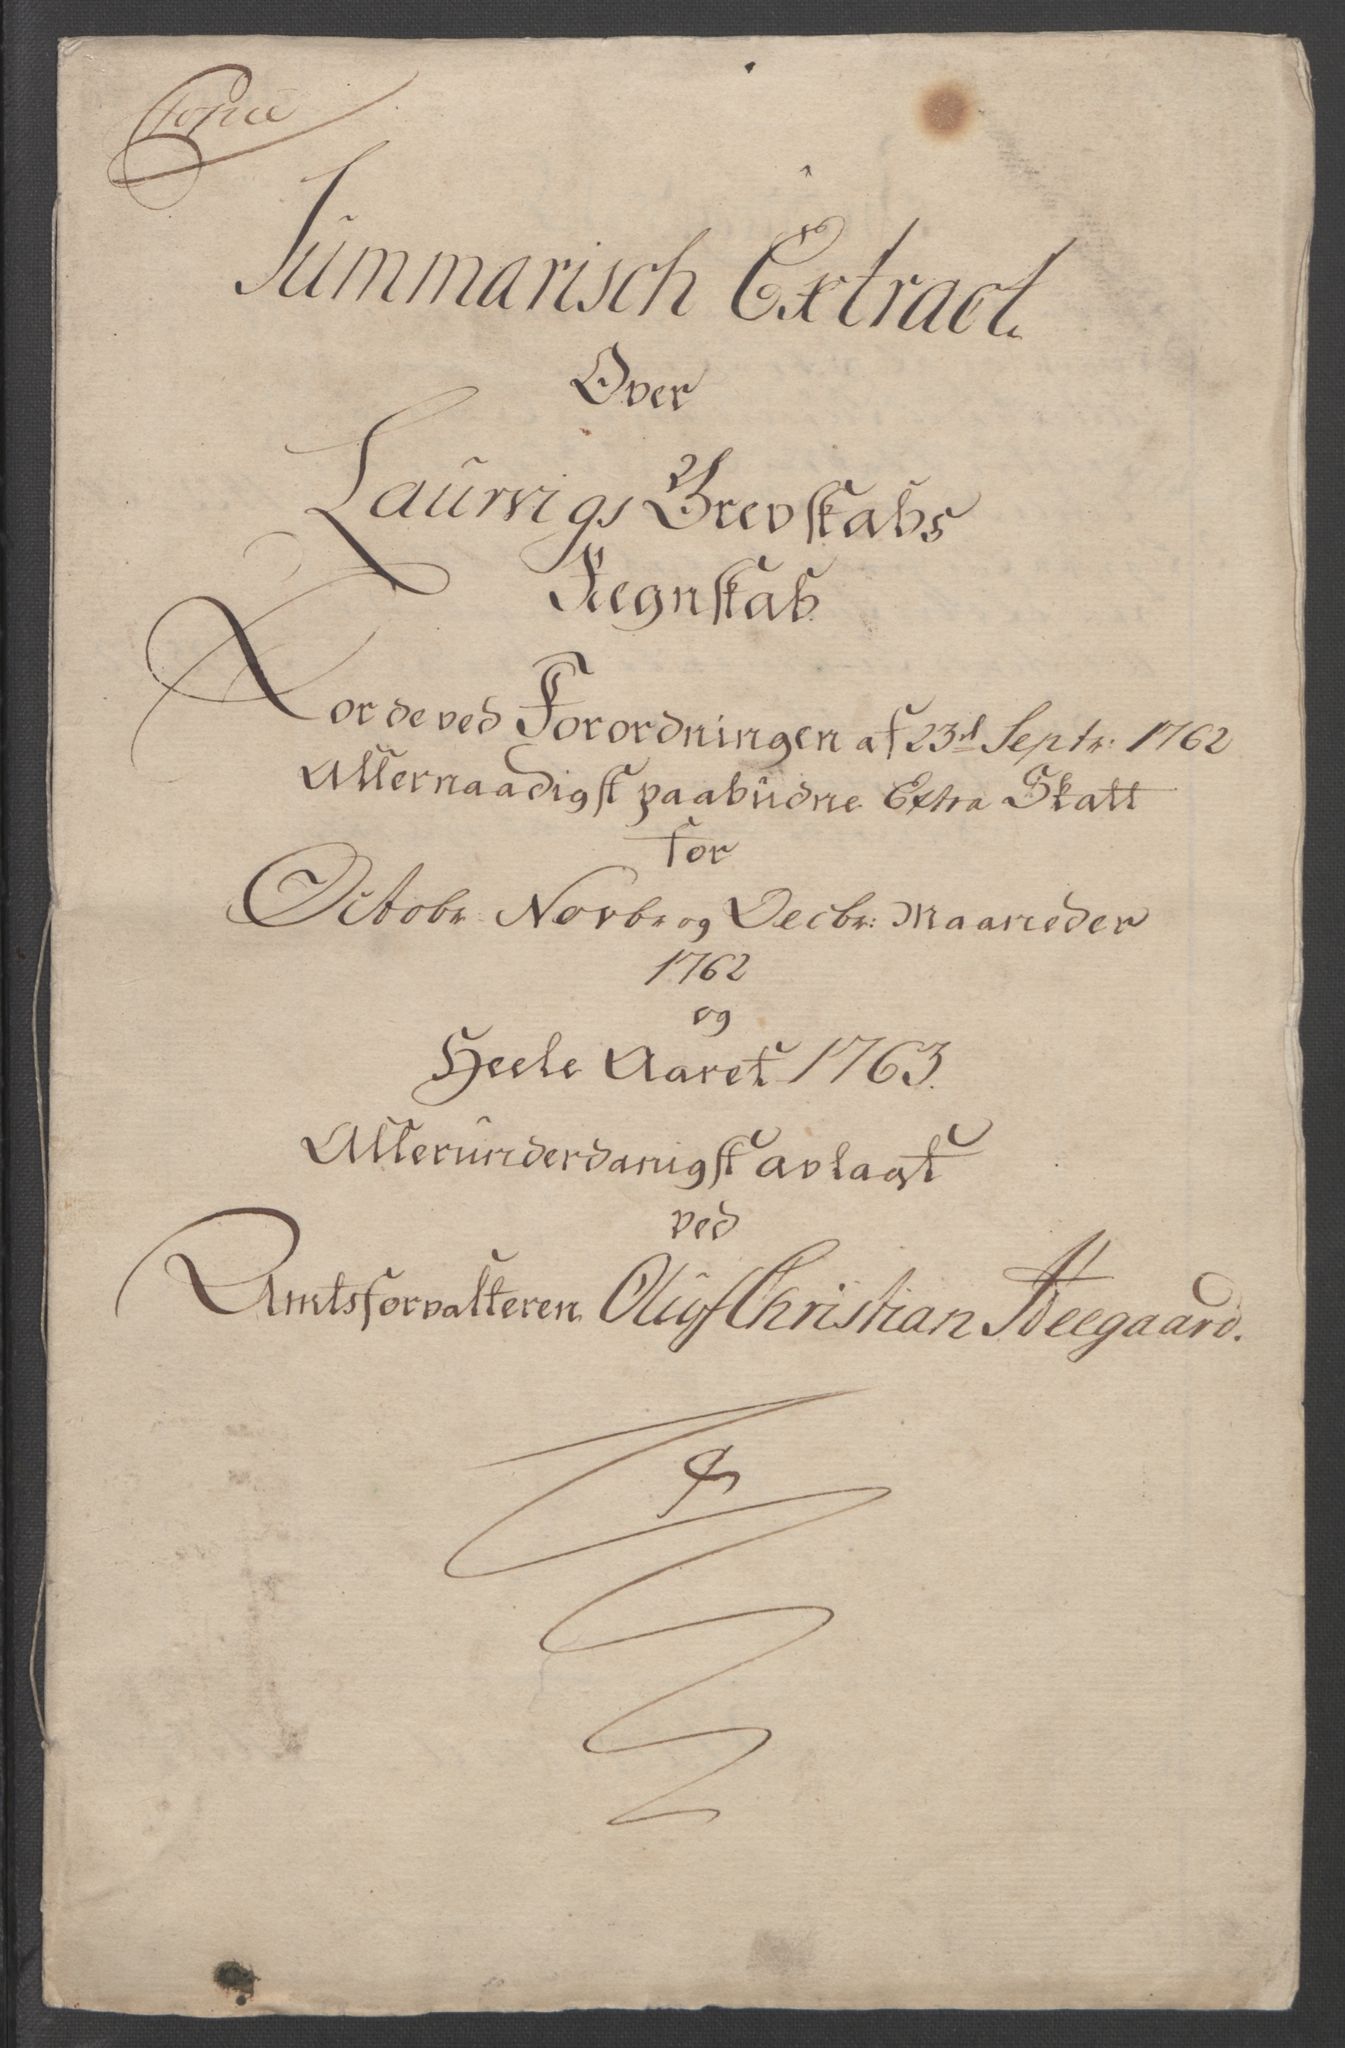 Copie
Summarisch Extract
Over
Laurvigs Grevskabs
Regnskab
For de ved Forordningen af 23d Septr: 1762
Allernaadigst paabudne Extra Skatt
for
Octobr: Novbr og Decbr: Maaneder
1762
og
Heele Aaret 1763.
Allerunderdanigst avlagt
ved
Amtsforvalteren Oluf Christian